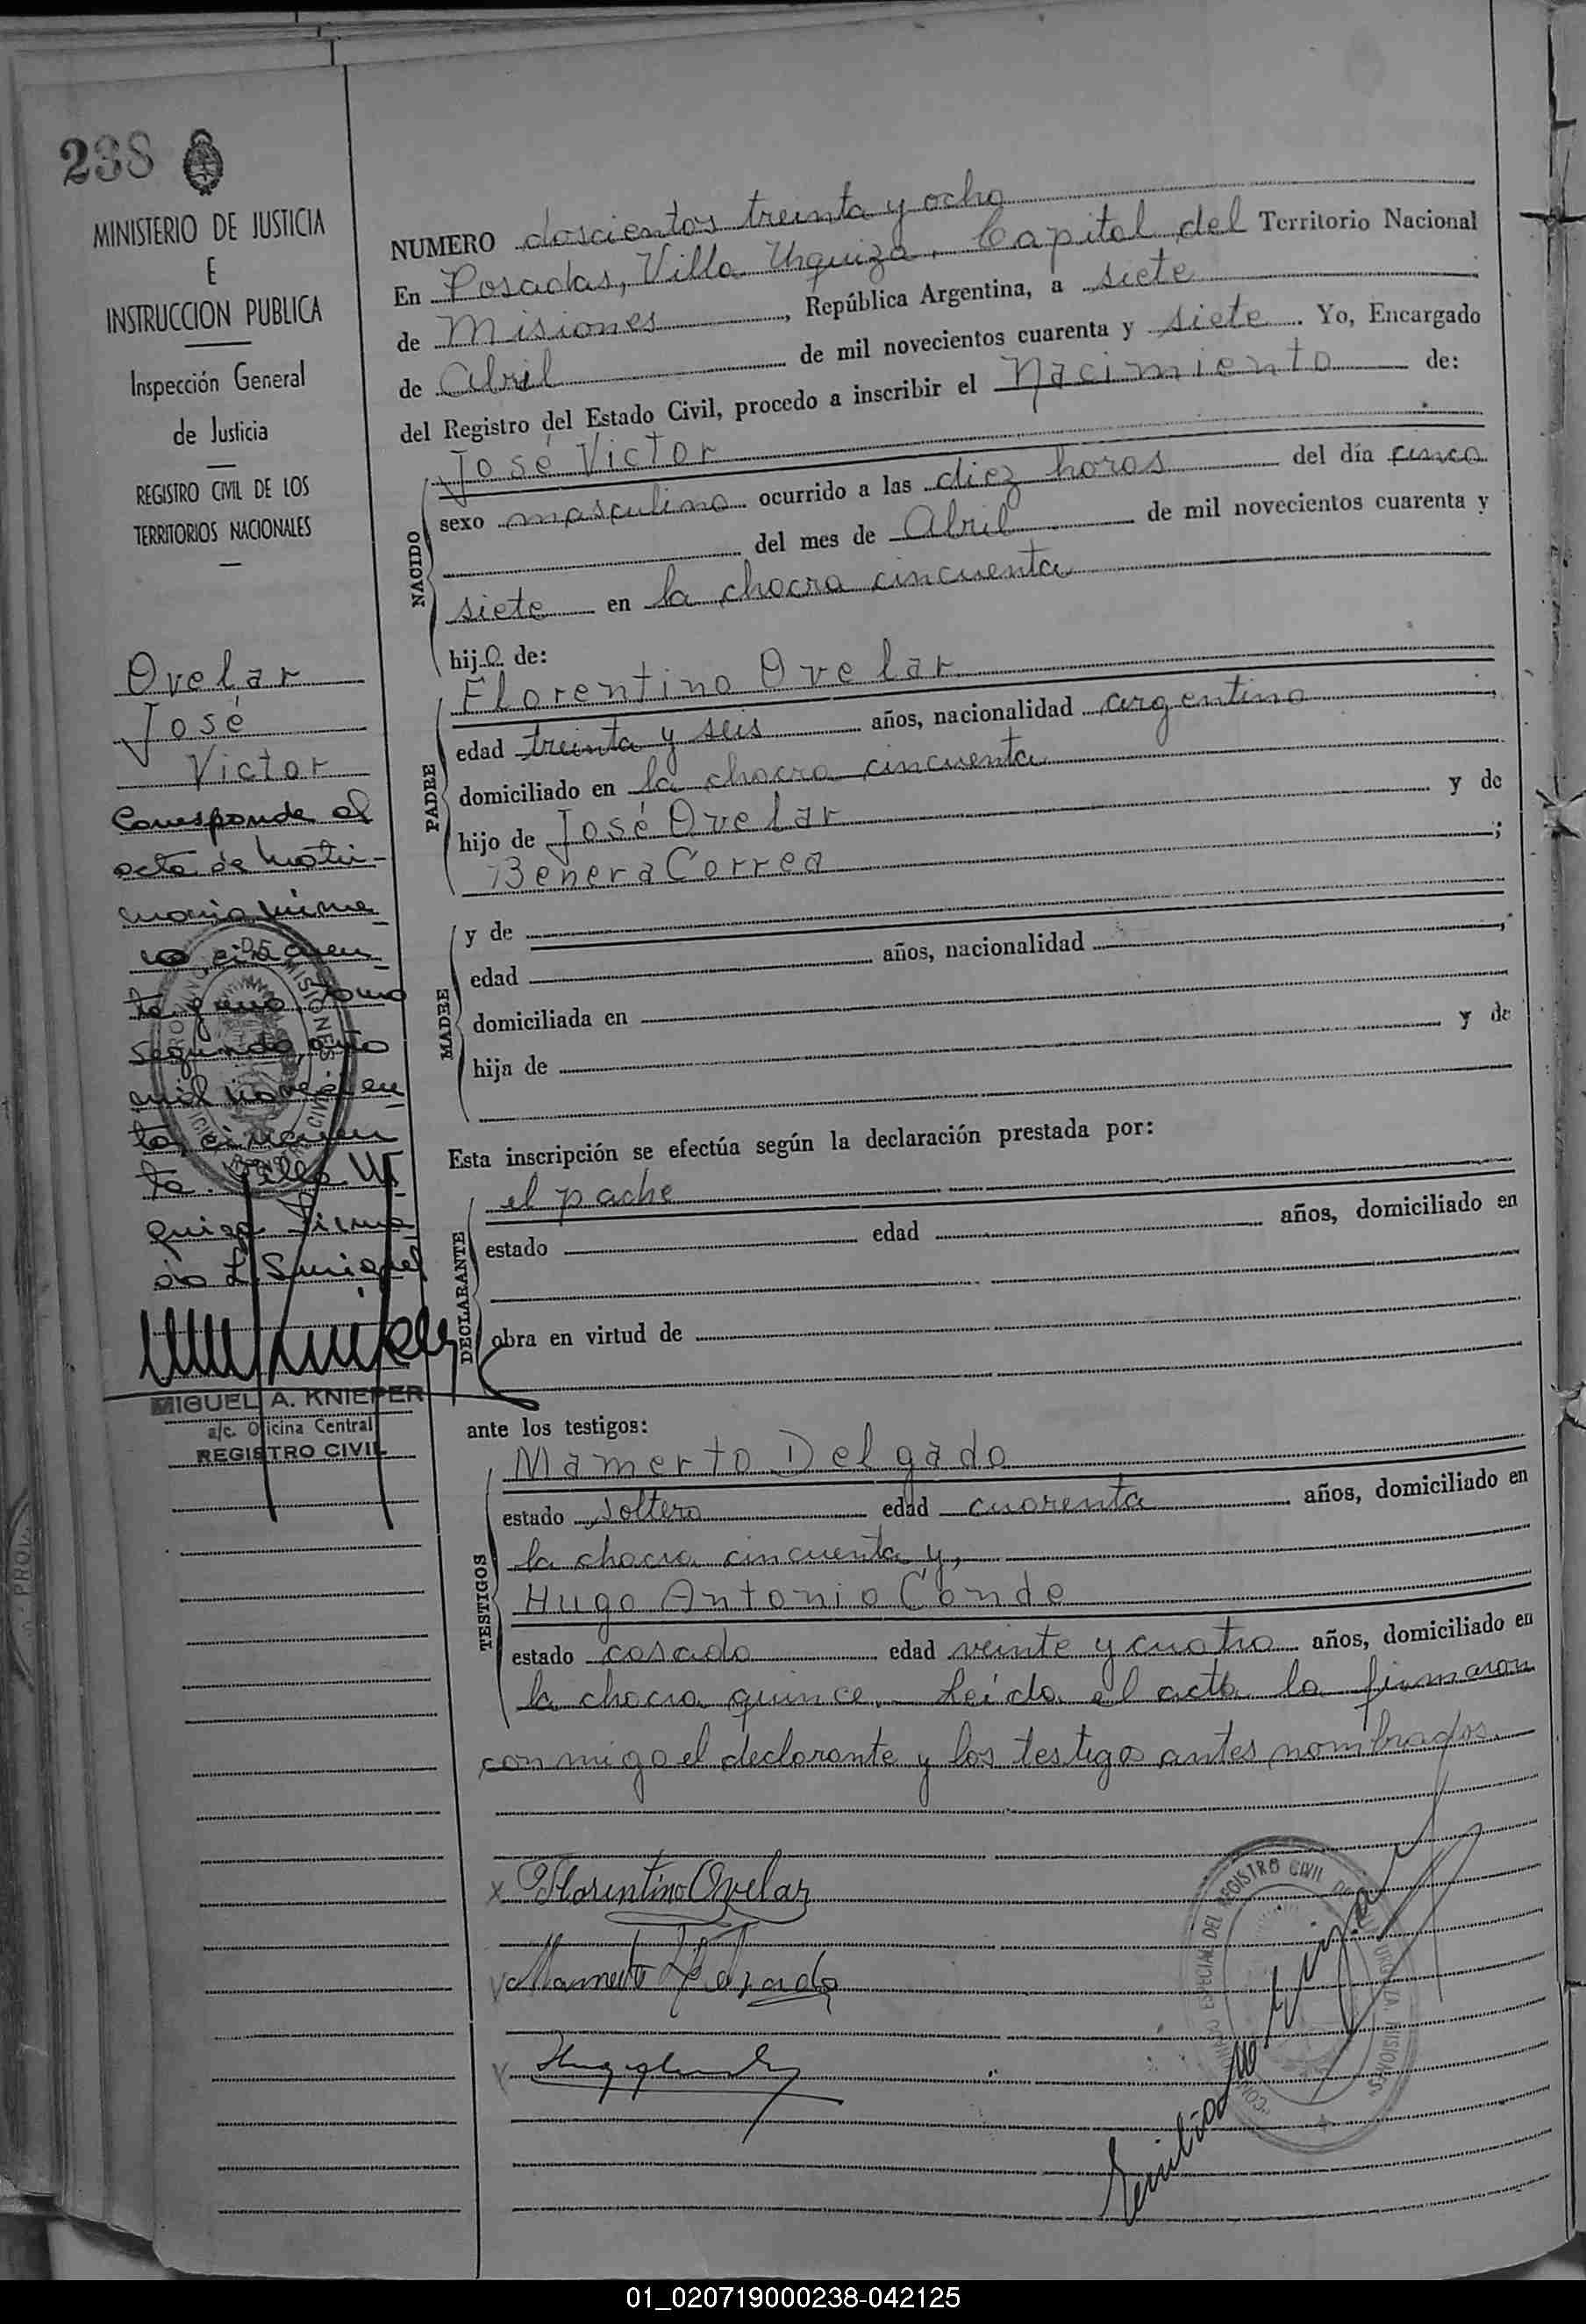 238
MINISTERIO DE JUSTICIA
E
INSTRUCCION PUBLICA
Inspección General
de Justicia
REGISTRO CIVIL DE LOS
TERRITORIOS NACIONALES
Ovelar
José
Victor
Corresponde al
acta de Matri-
monio núme-
ro cincuen-
ta y uno, tomo
segundo, año
mil novecien-
to, cincuen-
ta. Villa Ur-
quiza Firma-
do
MIGUEL A. KNIEPER
a/c. Oficina Central
REGISTRO CIVIL
NUMERO doscientos treinta y ocho
En Posadas, Villa Urquiza, Capital del Territorio Nacional
de Misiones, República Argentina, a siete
de Abril de mil novecientos cuarenta y siete. Yo, Encargado
del Registro del Estado Civil, procedo a inscribir el Nacimiento de:
José Victor
NACIDO
sexo masculino ocurrido a las diez horas del día cinco
del mes de Abril de mil novecientos cuarenta y
siete en la chacra cincuenta
hijo de:
PADRE
Florentino Ovelar
edad treinta y seis años, nacionalidad argentino
domiciliado en la chacra cincuenta
hijo de José Ovelar y de
Benera Correa ;
MADRE
y de
edad años, nacionalidad ,
domiciliada en
hija de y de
Esta inscripción se efectúa según la declaración prestada por:
DECLARANTE
el padre
estado edad años, domiciliado en
obra en virtud de
ante los testigos:
TESTIGOS
Mamerto Delgado
estado soltero edad cuarenta años, domiciliado en
la chacra cincuenta y,
Hugo Antonio Conde
estado casado edad veinte y cuatro años, domiciliado en
la chacra quince.- Leida el acta la firmaron
conmigo el declarante y los testigo antes nombrados.
x Florentino Ovelar
Mamerto Delgado
REGISTRO CIVIL
01_020719000238-042125